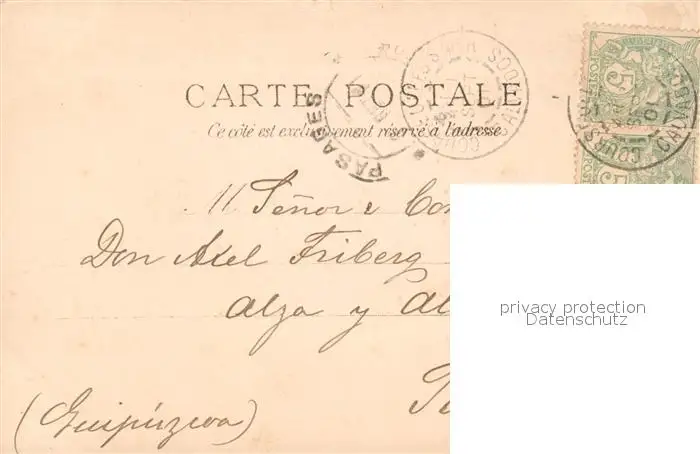 CARTE POSTALE
Ce côté est exclusivement réservé à l'adresse
PASAGES
COURSEULLES
CALVADOS
5
POSTES
Señor
Don Axel Friberg
Alza y Al
(Guipúzcoa)
privacy protection
Datenschutz